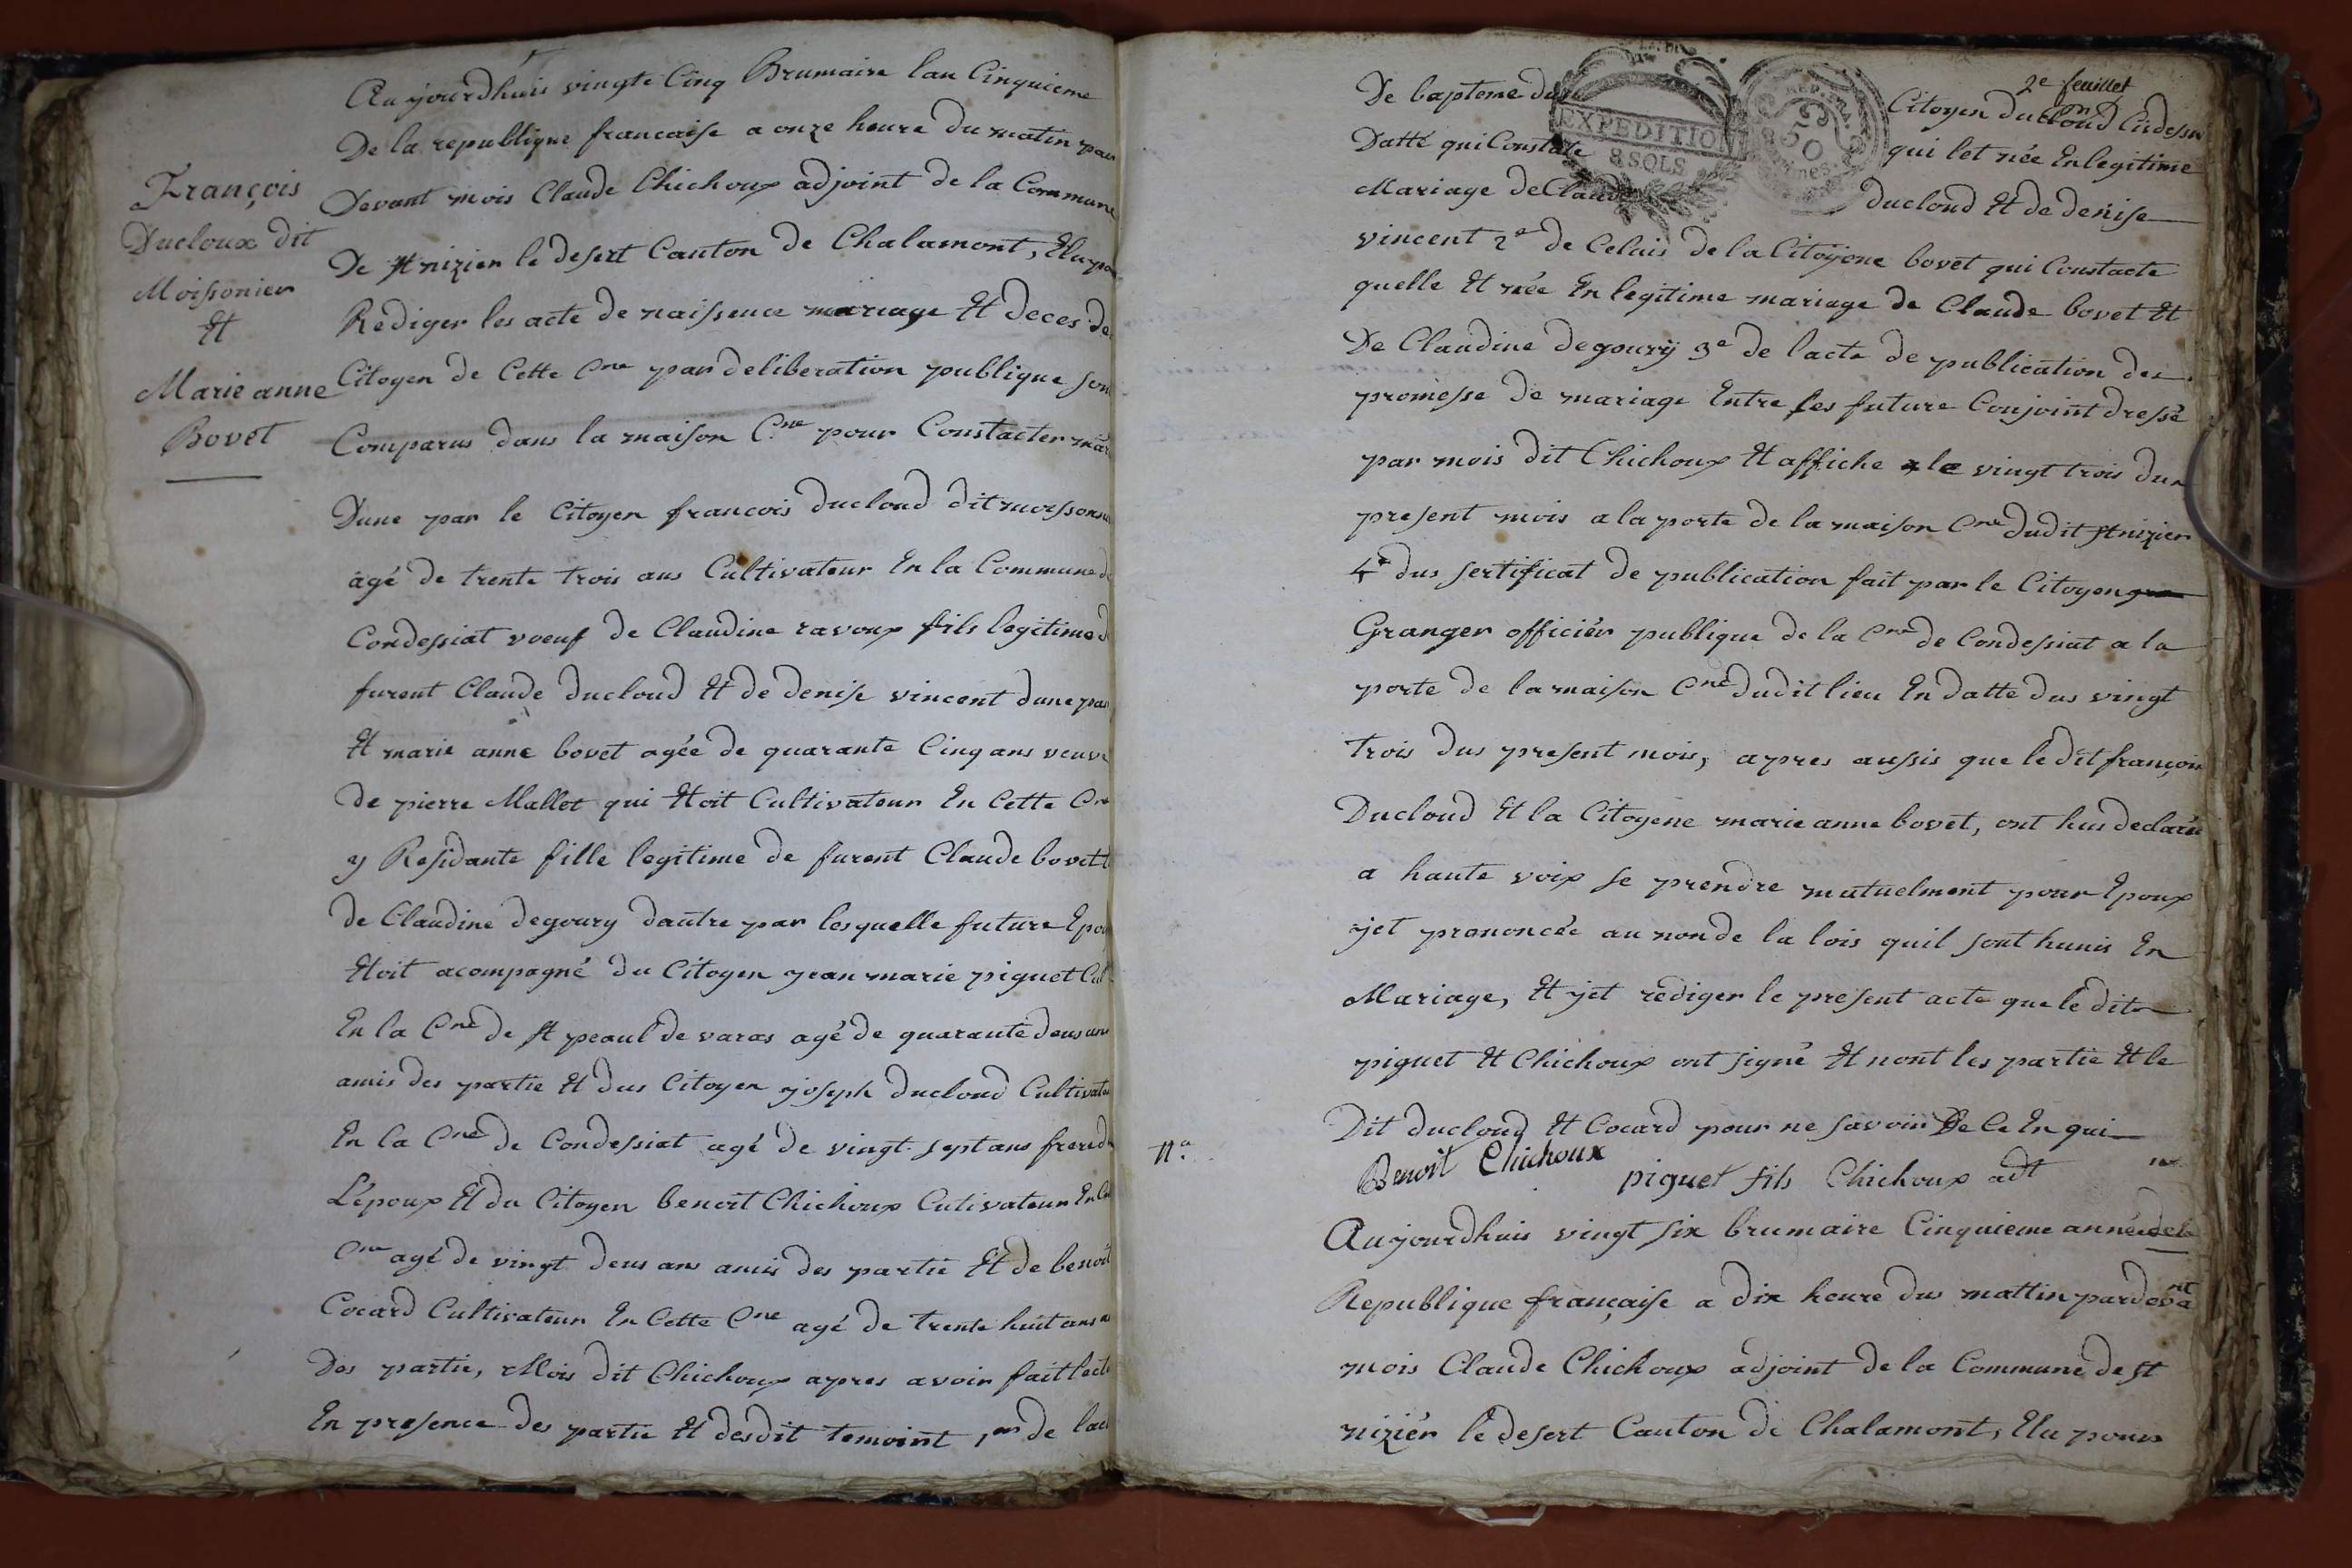 François
Ducloux dit
Moissonier
Et
Marie anne
Bovet
Aujourdhuis vingte Cinq Brumaire lan Cinquieme
De la republique francaise a onze heure du matin par
Devant mois Claude Chichoux adjoint de la Commune
De St nizier le desert Canton de Chalamont, Elu po
Rediger les acte de naissence mariage Et deces de
Citoyen de Cette Cne par deliberation publique son
Comparus dans la maison Cne pour Constacter mar
Dune par le Citoyen francois ducloud dit moissoni
agé de trente trois ans Cultivateur En la Commune d
Condessiat voeuf de Claudine ravoux fils legitime d
furent Claude ducloud Et de denise vincent dune par
Et marie anne bovet agée de quarante Cinq ans veuve
de pierre Mallet qui Etoit Cultivateur En Cette Cne
y Residante fille legitime de furent Claude bovet Et
de Claudine degoury dautre par lesquelle future Epou
Etoit acompagné du Citoyen jean marie piguet Cult
En la Cne de St peaul de varas agé de quarante deus ans
amis des partie Et dus Citoyen joseph ducloud Cultivateu
En la Cne de Condessiat agé de vingt sept ans frere de
Lépoux Et du Citoyen benoit Chichoux Cutivateur En Ce
Cne agé de vingt deus ans amis des partie Et de benoit
Cocard Cultivateur En Cette Cne agé de trente huit ans a
Des partie, Mois dit Chichoux apres avoir fait lect
En presence des partie Et desdit temoint 1er de lact
2e feuillet
De bapteme dus Citoyen ducloud Cidesu
EXPEDITION
8 SOLS
REP. FRA.
50
Datté qui Constate qui let née En legitime
Mariage de Claude ducloud Et de denise
vincent 2e de Celuis de la Citoyene bovet qui Constacte
quelle Et née En legitime mariage de Claude bovet Et
De Claudine degoury 3e de lacte de publication des
promesse de mariage Entre les future Conjoint dressé
par mois dit Chichoux Et affiche le vingt trois dus
present mois a la porte de la maison Cne dudit St nizier
4e dus sertificat de publication fait par le Citoyen
Granger officiér publique de la Cne de Condessiat a la
porte de la maison Cne dudit lieu En datte dus vingt
trois dus present mois, apres aussis que ledit françois
Ducloud Et la Citoyene marie anne bovet, ont hus declarée
a haute voix se prendre mutuelment pour Epoux
jet prononcée au nonde la lois quil sont hunis En
Mariage, Et jet rediger le present acte que ledit
piguet Et Chichoux ont signé Et nont les partie Et le
Dit ducloud Et Cocard pour ne savoir De Ce En qui
Benoit Chichoux piguet fils Chichoux adt
Na
Aujourdhuis vingt six brumaire Cinquieme année de la
Republique française a dix heure dus mattin pardevant
mois Claude Chichoux adjoint de la Commune de St
niziér le desert Canton de Chalamont, Elu pour